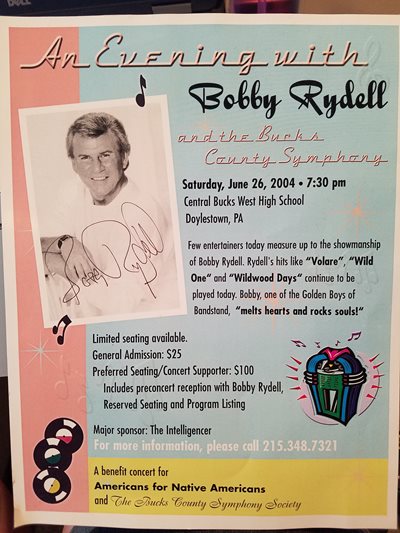 An Evening with
Bobby Rydell
and the Bucks
County Symphony
Saturday, June 26, 2004 • 7:30 pm
Central Bucks West High School
Doylestown, PA
Few entertainers today measure up to the showmanship
of Bobby Rydell. Rydell's hits like "Volare", "Wild
One" and "Wildwood Days" continue to
be played today. Bobby, one of the Golden Boys of
Bandstand, "melts hearts and rocks souls!"
Bobby Rydell
Limited seating available.
General Admission: $25
Preferred Seating/Concert Supporter: $100
Includes preconcert reception with Bobby Rydell,
Reserved Seating and Program Listing
Major sponsor: The Intelligencer
For more information, please call 215.348.7321
A benefit concert for
Americans for Native Americans
and The Bucks County Symphony Society